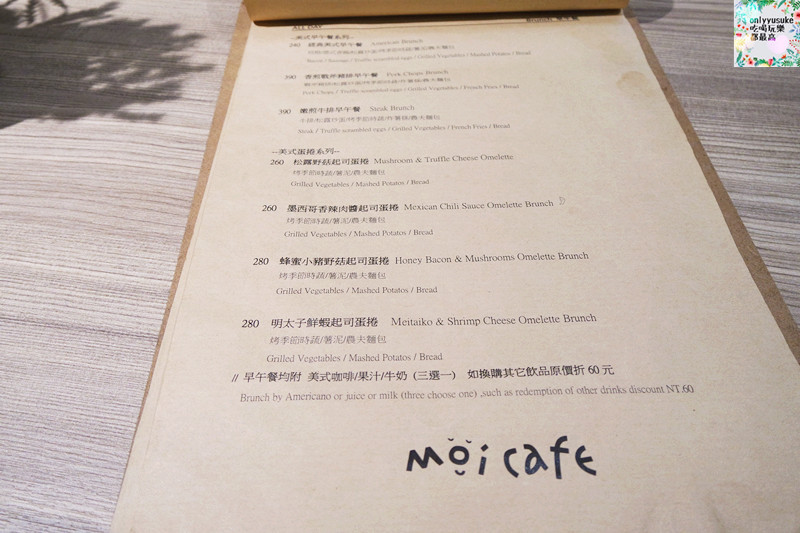 onlyyusuke
吃喝玩樂
部最高
ALL DAY
--美式早午餐系列--
240 經典美式早午餐 American Brunch
390 香煎戰斧豬排早午餐 Pork Chops Brunch
Pork Chops / Truffle scrambled eggs / Grilled Vegetables / French Fries / Bread
390 嫩煎牛排早午餐 Steak Brunch
牛排/松露炒蛋/烤季節時蔬/炸薯條/農夫麵包
Steak / Truffle scrambled eggs / Grilled Vegetables / French Fries / Bread
--美式蛋捲系列--
260 松露野菇起司蛋捲 Mushroom & Truffle Cheese Omelette
烤季節時蔬/薯泥/農夫麵包
Grilled Vegetables / Mashed Potatos / Bread
260 墨西哥香辣肉醬起司蛋捲 Mexican Chili Sauce Omelette Brunch
烤季節時蔬/薯泥/農夫麵包
Grilled Vegetables / Mashed Potatos / Bread
280 蜂蜜小豬野菇起司蛋捲 Honey Bacon & Mushrooms Omelette Brunch
烤季節時蔬/薯泥/農夫麵包
Grilled Vegetables / Mashed Potatos / Bread
280 明太子鮮蝦起司蛋捲 Meitaiko & Shrimp Cheese Omelette Brunch
烤季節時蔬/薯泥/農夫麵包
Grilled Vegetables / Mashed Potatos / Bread
// 早午餐均附 美式咖啡/果汁/牛奶 (三選一) 如換購其它飲品原價折 60 元
Brunch by Americano or juice or milk (three choose one) ,such as redemption of other drinks discount NT.60
moi cafe